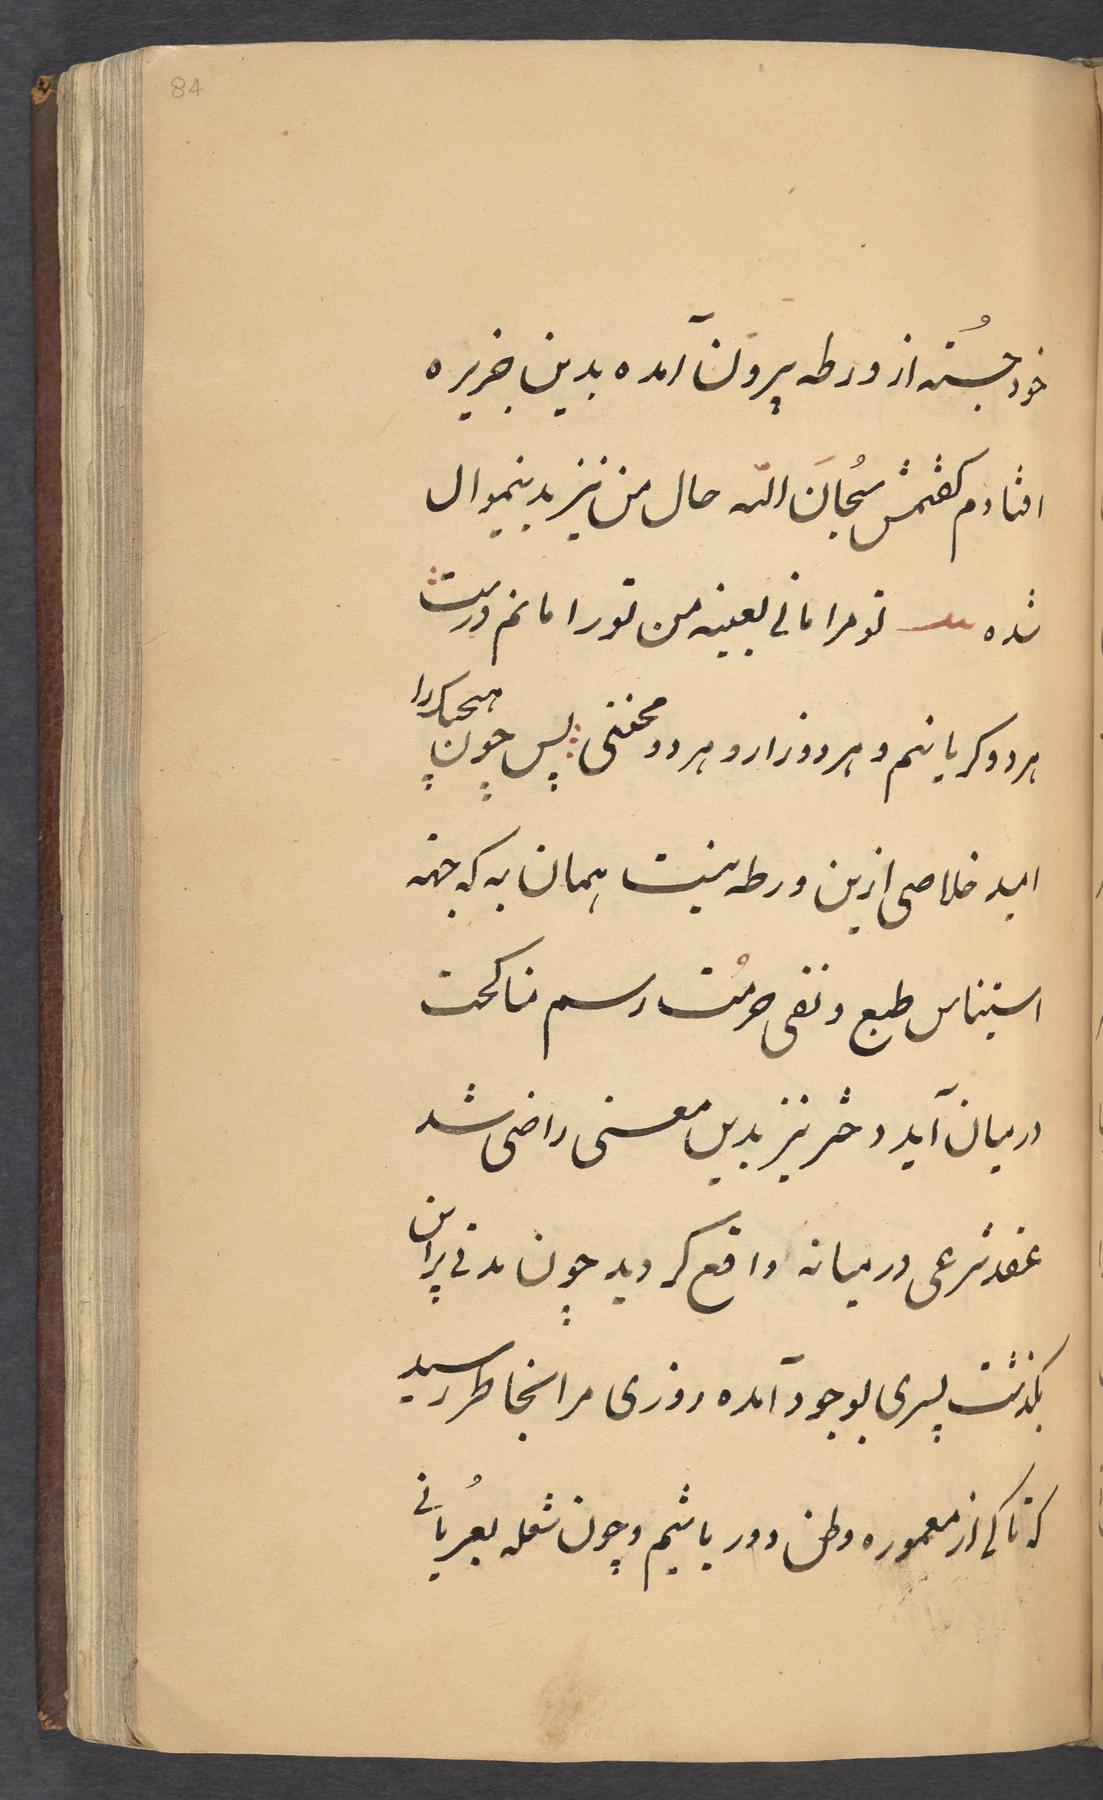 84
خود جُسته از ورطه بیرون آمده بدین جزیره
افتادم کفتمش سُبحانَ اللّه حال من نیز بدینموال
شده تو مرا مانی بعینه من تو را مانم درست
هر دو کریانیم و هر دو زار و هر دو محنتی پس چون هیچیکرا
امید خلاصی ازین ورطه نیست همان به که جهته
استیناس طبع و نفی حرمُت رسم مناکحت
درمیان آید دختر نیز بدین معنی راضی شد
عقد شرعی درمیانه واقع کردید چون مدتی براین
بکذشت پسری بوجود آمده روزی مرا بخاطر رسید
که تا کی از معموره وطن دور باشیم و چون شعله بعُریانی